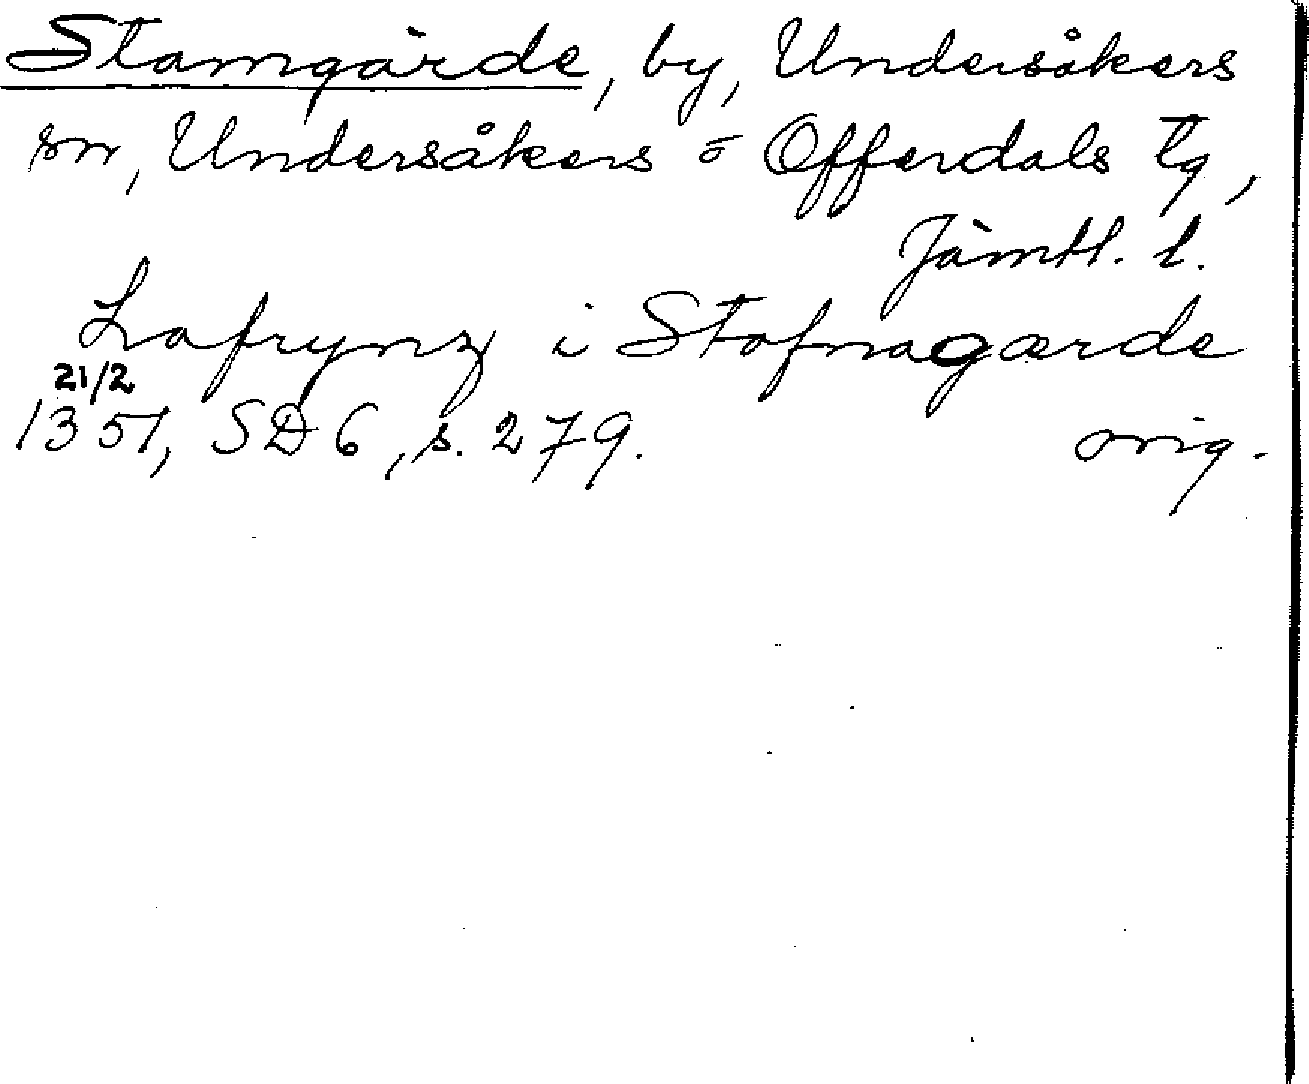 Stamgärde, by, Undersåkers
sn, Undersåkers o Offerdals tg,
Jämtl. l.
Lafrynz i Stofnagærde
21/2
1351, SD 6, s. 279. orig.